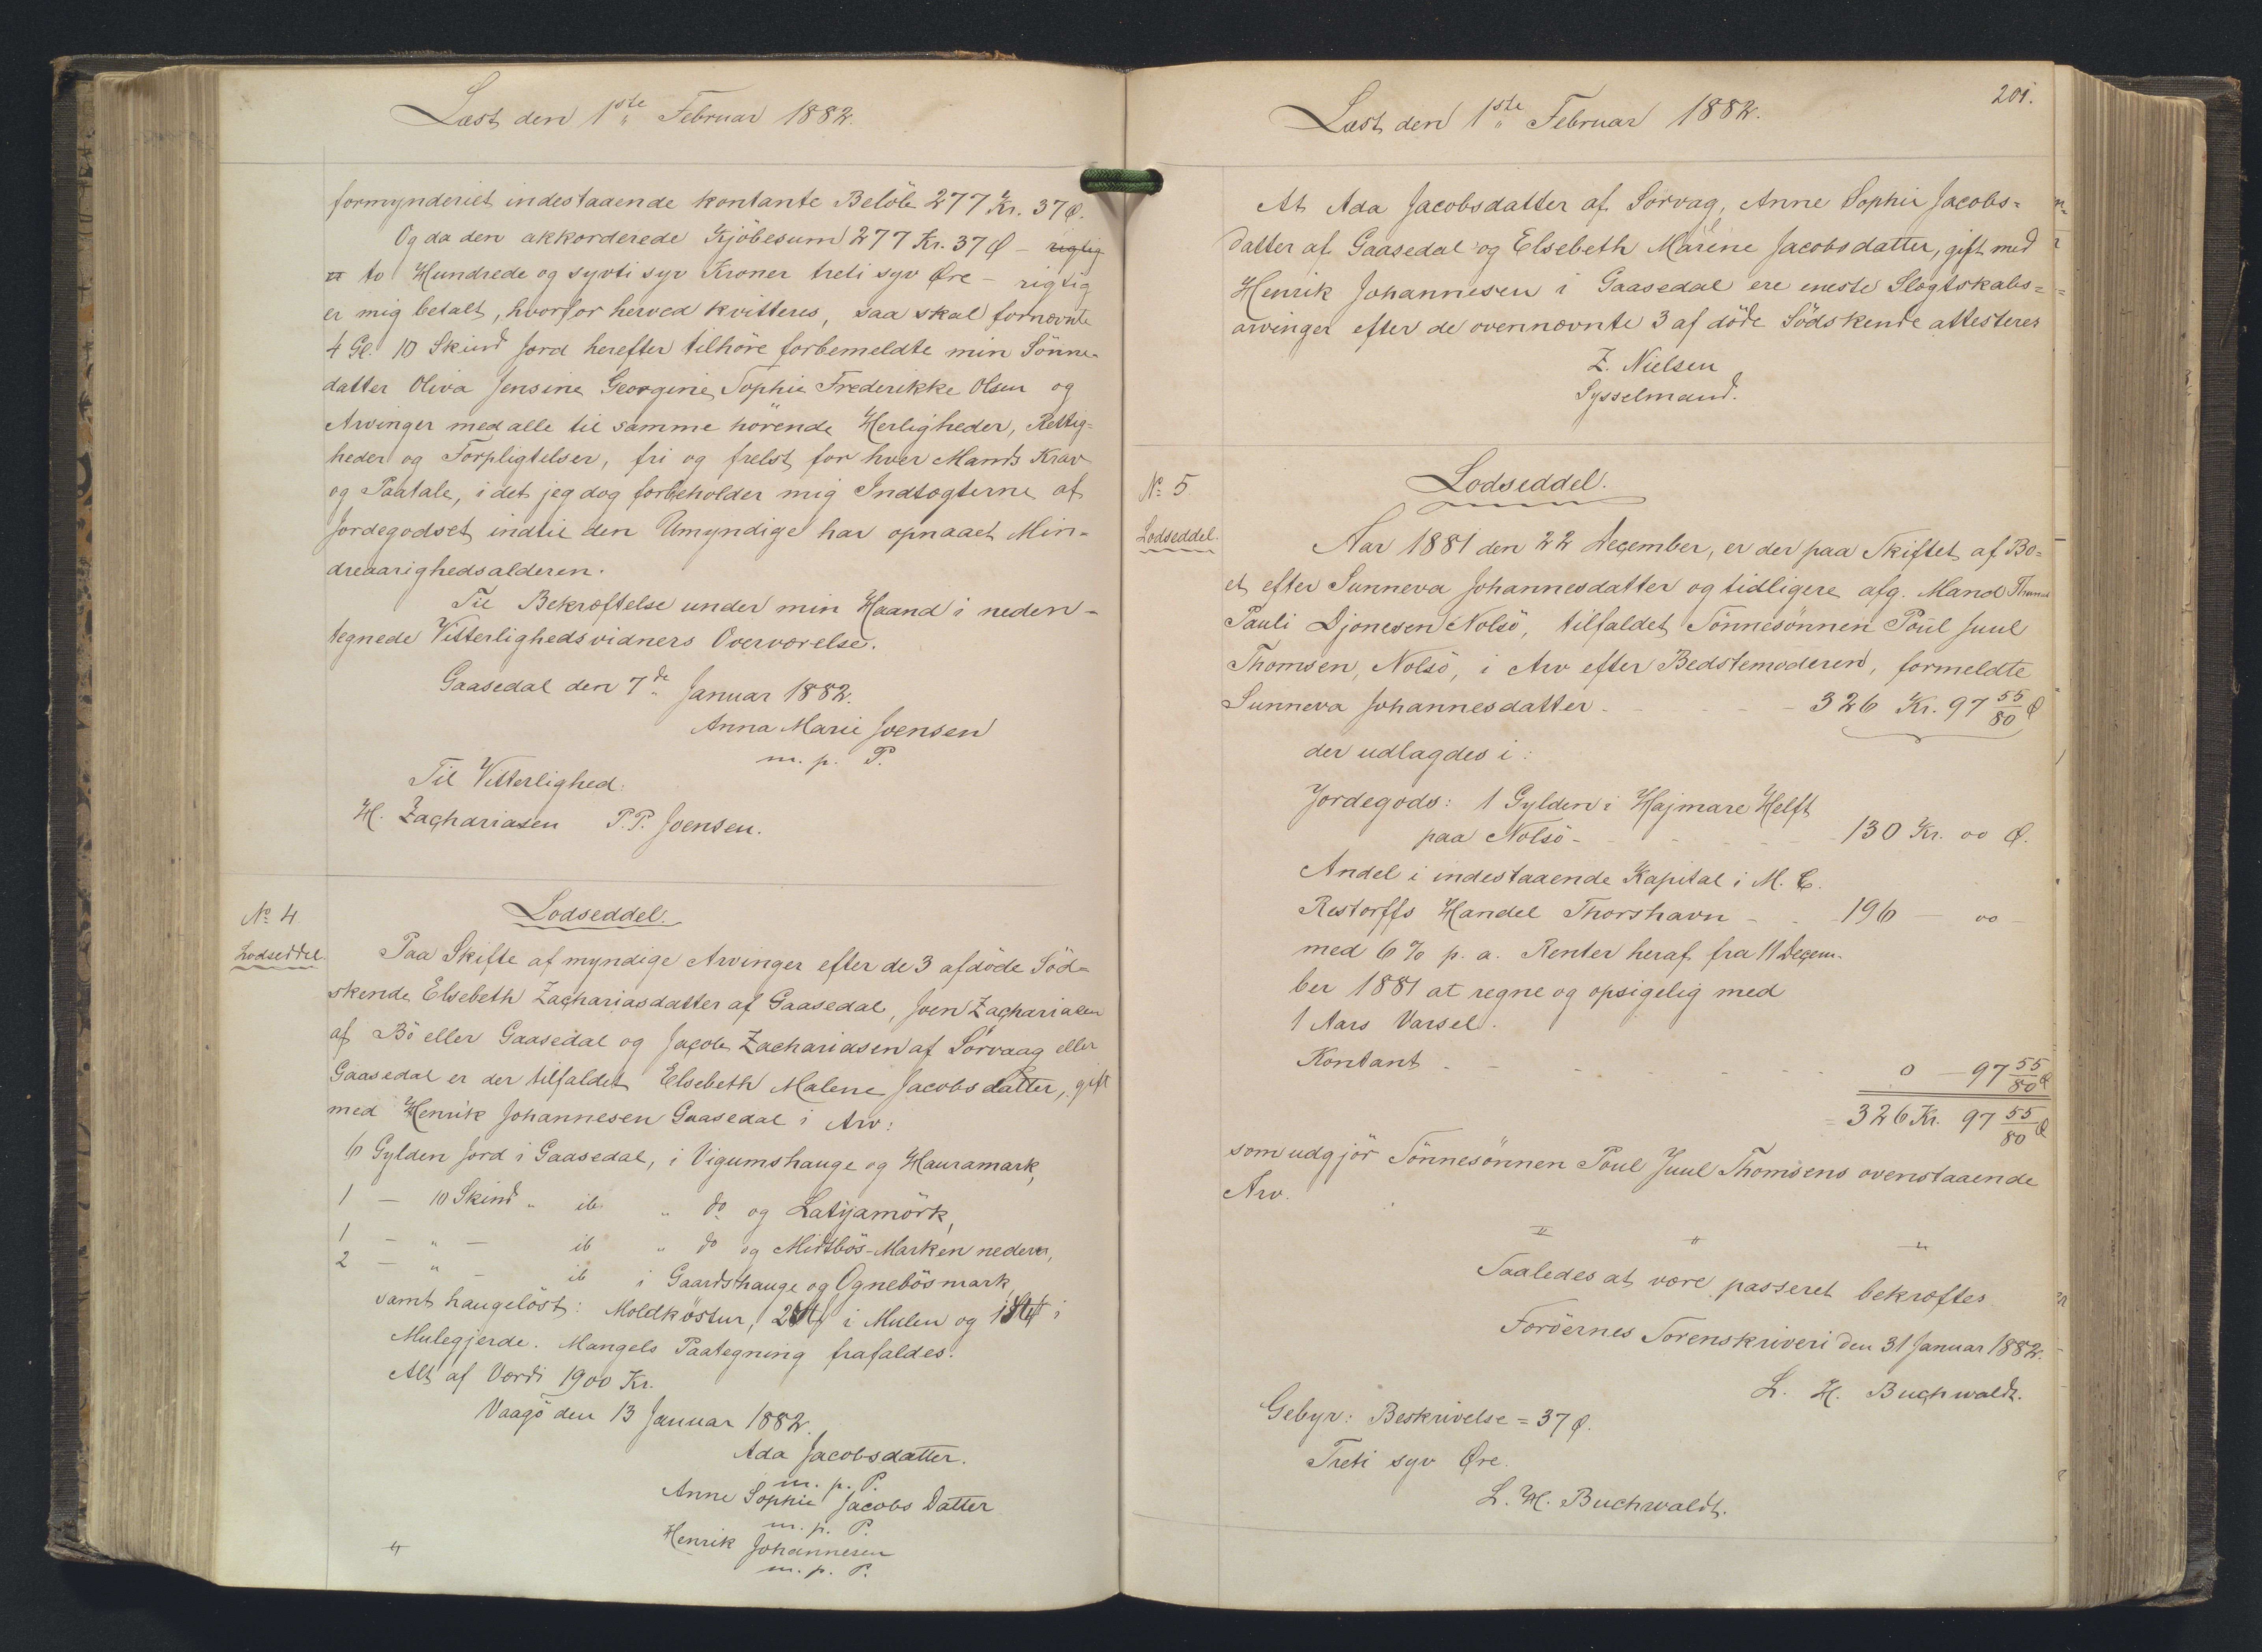 Læst den 1ste Februar 1882.
formynderiet indestaaende kontante Beløb 277 Kr. 37 Ø.
Og da den akkorderede Kjøbesum 277 Kr. 37 Ø - rigtig
er to Hundrede og syvti syv Kroner treti syv Øre - rigtig
er mig betalt, hvorfor herved kvitteres, saa skal fornævnte
4 Gl. 10 Skind Jord herefter tilhøre forbemeldte min Sønne-
datter Oliva Jensine Georgine Sophie Frederikke Olsen og
Arvinger med alle til samme hørende Herligheder, Rettig=
heder og Forpligtelser, fri og frelst for hver Mands Krav
og Paatale, i det jeg dog forbeholder mig Indtægterne af
Jordegodset indtil den Umyndige har opnaaet Min-
dreaarighedsalderen.
Til Bekræftelse under min Haand i neden-
tegnede Vitterlighedsvidners Overværelse.
Gaasedal den 7de Januar 1882.
Anna Marie Joensen
m. p. P.
Til Vitterlighed:
H. Zachariasen P.P. Joensen.
No 4
Lodseddel.
Lodseddel.
Paa Skifte af myndige Arvinger efter de 3 afdøde Sød-
skende Elsebeth Zachariasdatter af Gaasedal, Joen Zachariasen
af Bø eller Gaasedal og Jacob Zachariasen af Sørvaag eller
Gaasedal er der tilfaldet Elsebeth Malene Jacobsdatter, gift
med Henrik Johannesen Gaasedal i Arv:
6 Gylden Jord i Gaasedal, i Vigumshauge og Hauramark,
1 - 10 Skind " ib " do og Latyamørk,
1 - " - ib " do og Midtbøs-Marken neder,
2 - " - ib i Gaardshauge og Ognebøsmark,
samt haugeløst: Moldkøstur, 2 i Mulen og 1 i
Mulegjerde. Mangels Paategning frafaldes.
Alt af Værdi 1900 Kr.
Vaagø den 13 Januar 1882.
Ada Jacobsdatter.
m. p. P.
Anne Sophie Jacobs Datter
m. p. P.
Henrik Johannesen
m. p. P.
Læst den 1ste Februar 1882.
201.
At Ada Jacobsdatter af Sørvag, Anne Sophie Jacobs=
datter af Gaasedal og Elsebeth Marene Jacobsdatter, gift med
Henrik Johannesen i Gaasedal ere eneste Slægtskabs=
arvinger efter de ovennævnte 3 af døde Sødskende attesteres
Z. Nielsen
Sysselmand.
No 5
Lodseddel.
Lodseddel.
Aar 1881 den 22 December, er der paa Skiftet af Bo=
et efter Sunneva Johannesdatter og tidligere afg. Mand Thomas
Pauli Djonesen Nolsø, tilfaldet Sønnesønnen Poul Juul
Thomsen, Nolsø, i Arv efter Bedstemoderen, formeldte
Sunneva Johannesdatter - - - - 326 Kr. 97 55/80 Ø
der udlagdes i:
Jordegods: 1 Gylden i Hajmare Helft
paa Nolsø - - - - 130 Kr. 00 Ø.
Andel i indestaaende Kapital i M. C.
Restorffs Handel Thorshavn - - 196 - 00 -
med 6 % p. a. Renter heraf fra 11 Decem-
ber 1881 at regne og opsigelig med
1 Aars Varsel.
Kontant - - - - - - 0 - 97 55/80 Ø
= 326 Kr. 97 55/80 Ø
som udgjør Sønnesønnen Poul Juul Thomsens ovenstaaende
Arv.
Saaledes at være passeret bekræftes
Færøernes Sorenskriveri den 31 Januar 1882.
L. H. Buchwaldt.
Gebyr: Beskrivelse = 37 Ø.
Treti syv Øre.
L. H. Buchwaldt.